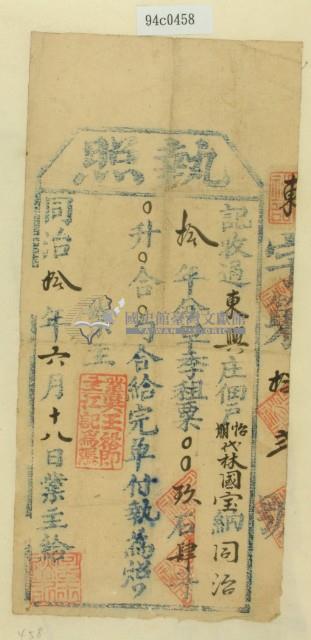 94c0458
執照
東字第拾三號
記收過東興庄佃戶怡期代林國宝納同治
拾年分早季租粟00玖石肆斗
0升0合
合給完單付執為炤
業主
同治拾年六月十八日業主給
國史館臺灣文獻館
458